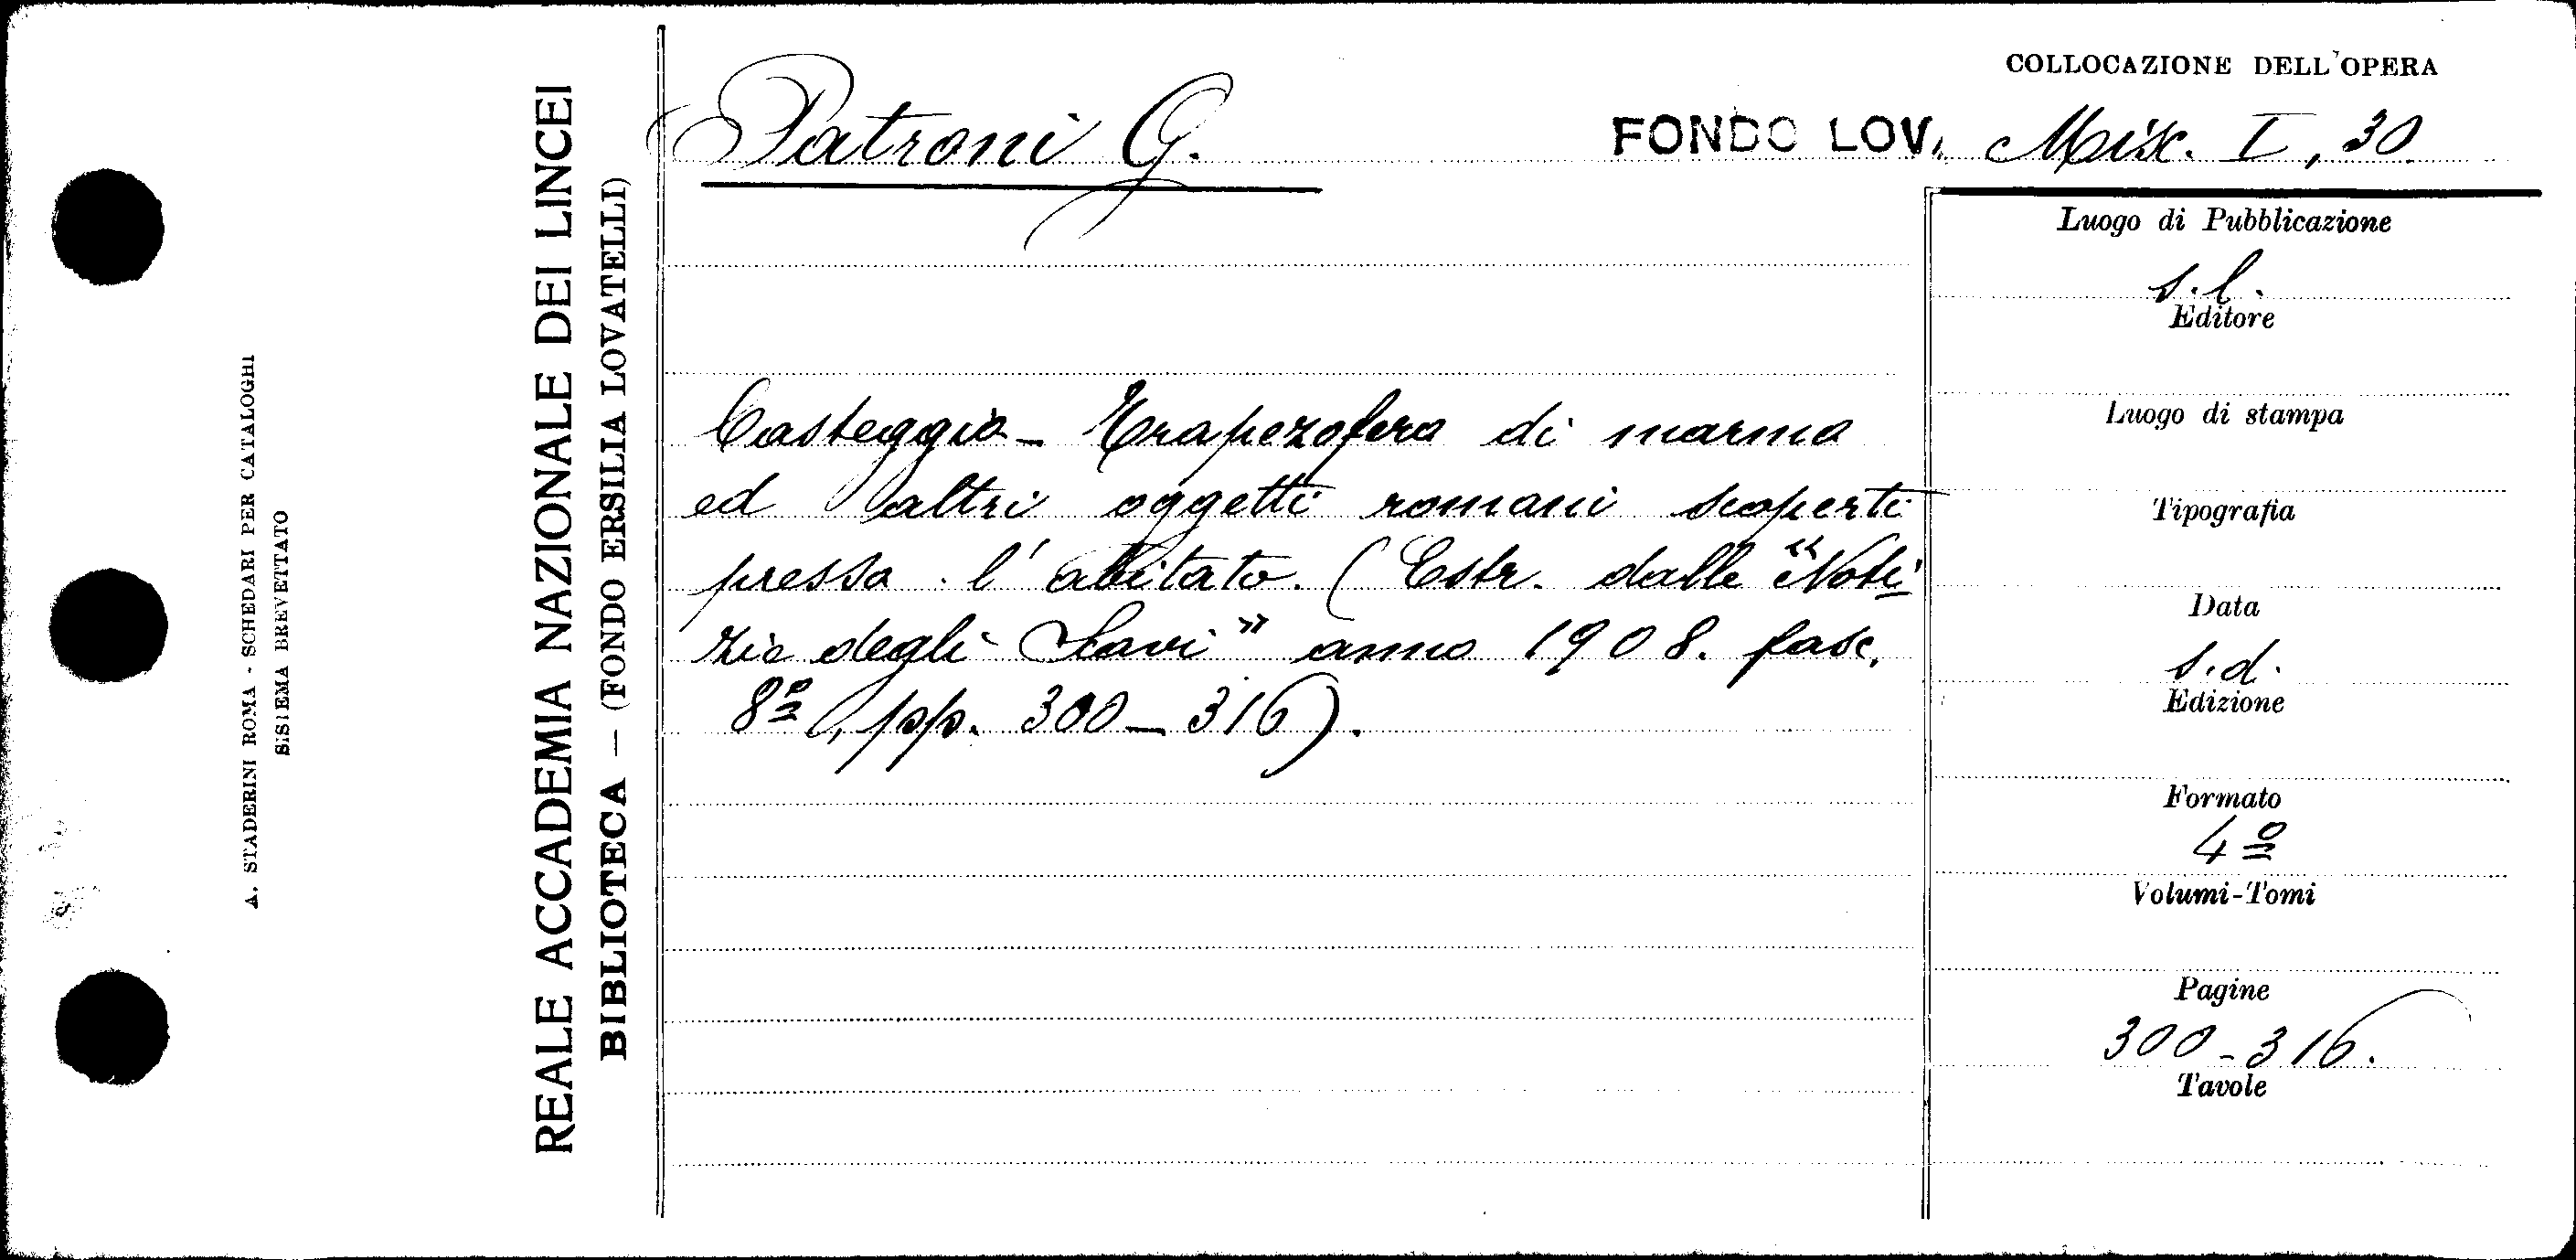 COLLOCAZIONE DELL'OPERA
Patroni G.
FONDO LOV. Misc. I, 30
Luogo di Pubblicazione
s.l.
Editore
Luogo di stampa
Tipografia
Data
s.d.
Edizione
Formato
4º
Volumi-Tomi
Pagine
300-316.
Tavole
Casteggio - Trapezoforo di marmo
ed altri oggetti romani scoperti
presso l'abitato. (Estr. dalle "Noti
zie degli Scavi" anno 1908. fasc.
8º, pp. 300-316).
REALE ACCADEMIA NAZIONALE DEI LINCEI
BIBLIOTECA — (FONDO ERSILIA LOVATELLI)
A. STADERINI ROMA - SCHEDARI PER CATALOGHI
SISTEMA BREVETTATO